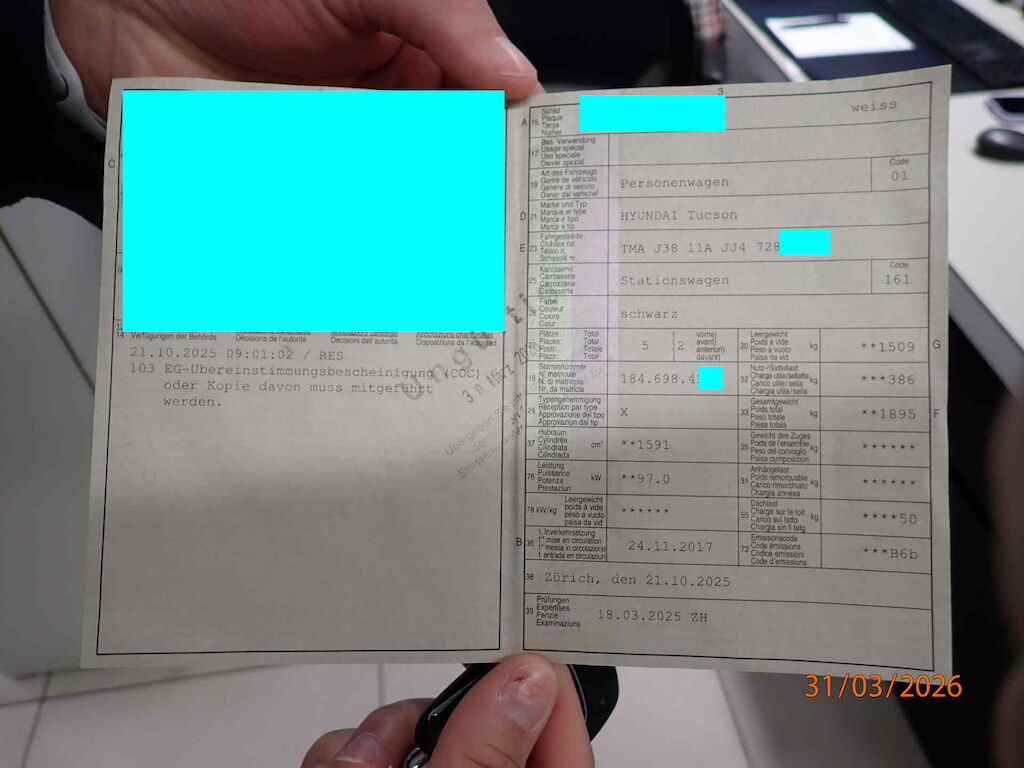 3
C
14 Verfügungen der Behörde
Décisions de l'autorité
Decisioni dell'autorità
Disposiziuns da l'autoritad
21.10.2025 09:01:02 / RES
103 EG-Übereinstimmungsbescheinigung (COC)
oder Kopie davon muss mitgeführt
werden.
Ungülti
30. März 20
A 15 Schild
Plaque
Targa
Numer
weiss
17 Bes. Verwendung
Usage spécial
Uso speciale
Diever spezial
19 Art des Fahrzeugs
Genre de véhicule
Genere di veicolo
Gener dal vehichel
Personenwagen
Code
01
D 21 Marke und Typ
Marque et type
Marca e tipo
Marca e tip
HYUNDAI Tucson
E 23 Fahrgestell-Nr.
Châssis no
Telaio n.
Schassis nr.
TMA J38 11A JJ4 728
25 Karosserie
Carrosserie
Carrozzeria
Carossaria
Stationswagen
Code
161
26 Farbe
Couleur
Colore
Colur
schwarz
27 Plätze: Total
Places: Total
Posti: Totale
Plazs: Total
5 ( 2 vorne)
avant)
anteriori)
davant)
30 Leergewicht
Poids à vide
Peso a vuoto
Paisa da vid
kg
**1509
G
18 Stammnummer
N° matricule
N. di matricola
Nr. da matricla
184.698.4
32 Nutz-/Sattellast
Charge utile/sellette
Carico utile/sella
Chargia utila/sella
kg
***386
24 Typengenehmigung
Réception par type
Approvazione del tipo
Approvaziun dal tip
X
33 Gesamtgewicht
Poids total
Peso totale
Paisa totala
kg
**1895
F
37 Hubraum
Cylindrée
Cilindrata
Cilindrada
cm³
**1591
35 Gewicht des Zuges
Poids de l'ensemble
Peso del convoglio
Paisa cumposiziun
kg
******
76 Leistung
Puissance
Potenza
Prestaziun
kW
**97.0
31 Anhängelast
Poids remorquable
Carico rimorchiato
Chargia annexa
kg
******
78 kW/kg
Leergewicht
poids à vide
peso a vuoto
paisa da vid
******
55 Dachlast
Charge sur le toit
Carico sul tetto
Chargia sin il tetg
kg
****50
B 36 1. Inverkehrsetzung
1re mise en circulation
1a messa in circolazione
1 entrada en circulaziun
24.11.2017
72 Emissionscode
Code émissions
Codice emissioni
Code d'emissiuns
***B6b
38 Zürich, den 21.10.2025
39 Prüfungen
Expertises
Perizie
Examinaziuns
18.03.2025 ZH
31/03/2026